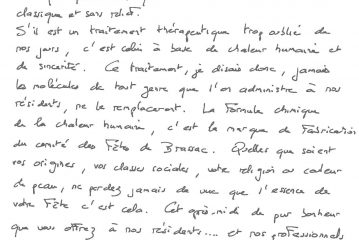 classique et sans relief.
S'il est un traitement thérapeutique trop oublié de
nos jours, c'est celui à base de chaleur humaine et
de sincérité. Ce traitement, je disais donc, jamais
les molécules de tout genre que l'on administre à nos
résidents, ne le remplaceront. La Formule chimique
de la chaleur humaine, c'est la marque de Fabrication
du comité des Fête de Brassac. Quelles que soient
vos origines, vos classes sociales, votre religion ou couleur
de peau, ne perdez jamais de vue que l'essence de
votre Fête c'est cela. Cet après-midi de pur bonheur
que vous offrez à nos résidents.... et nos professionnels